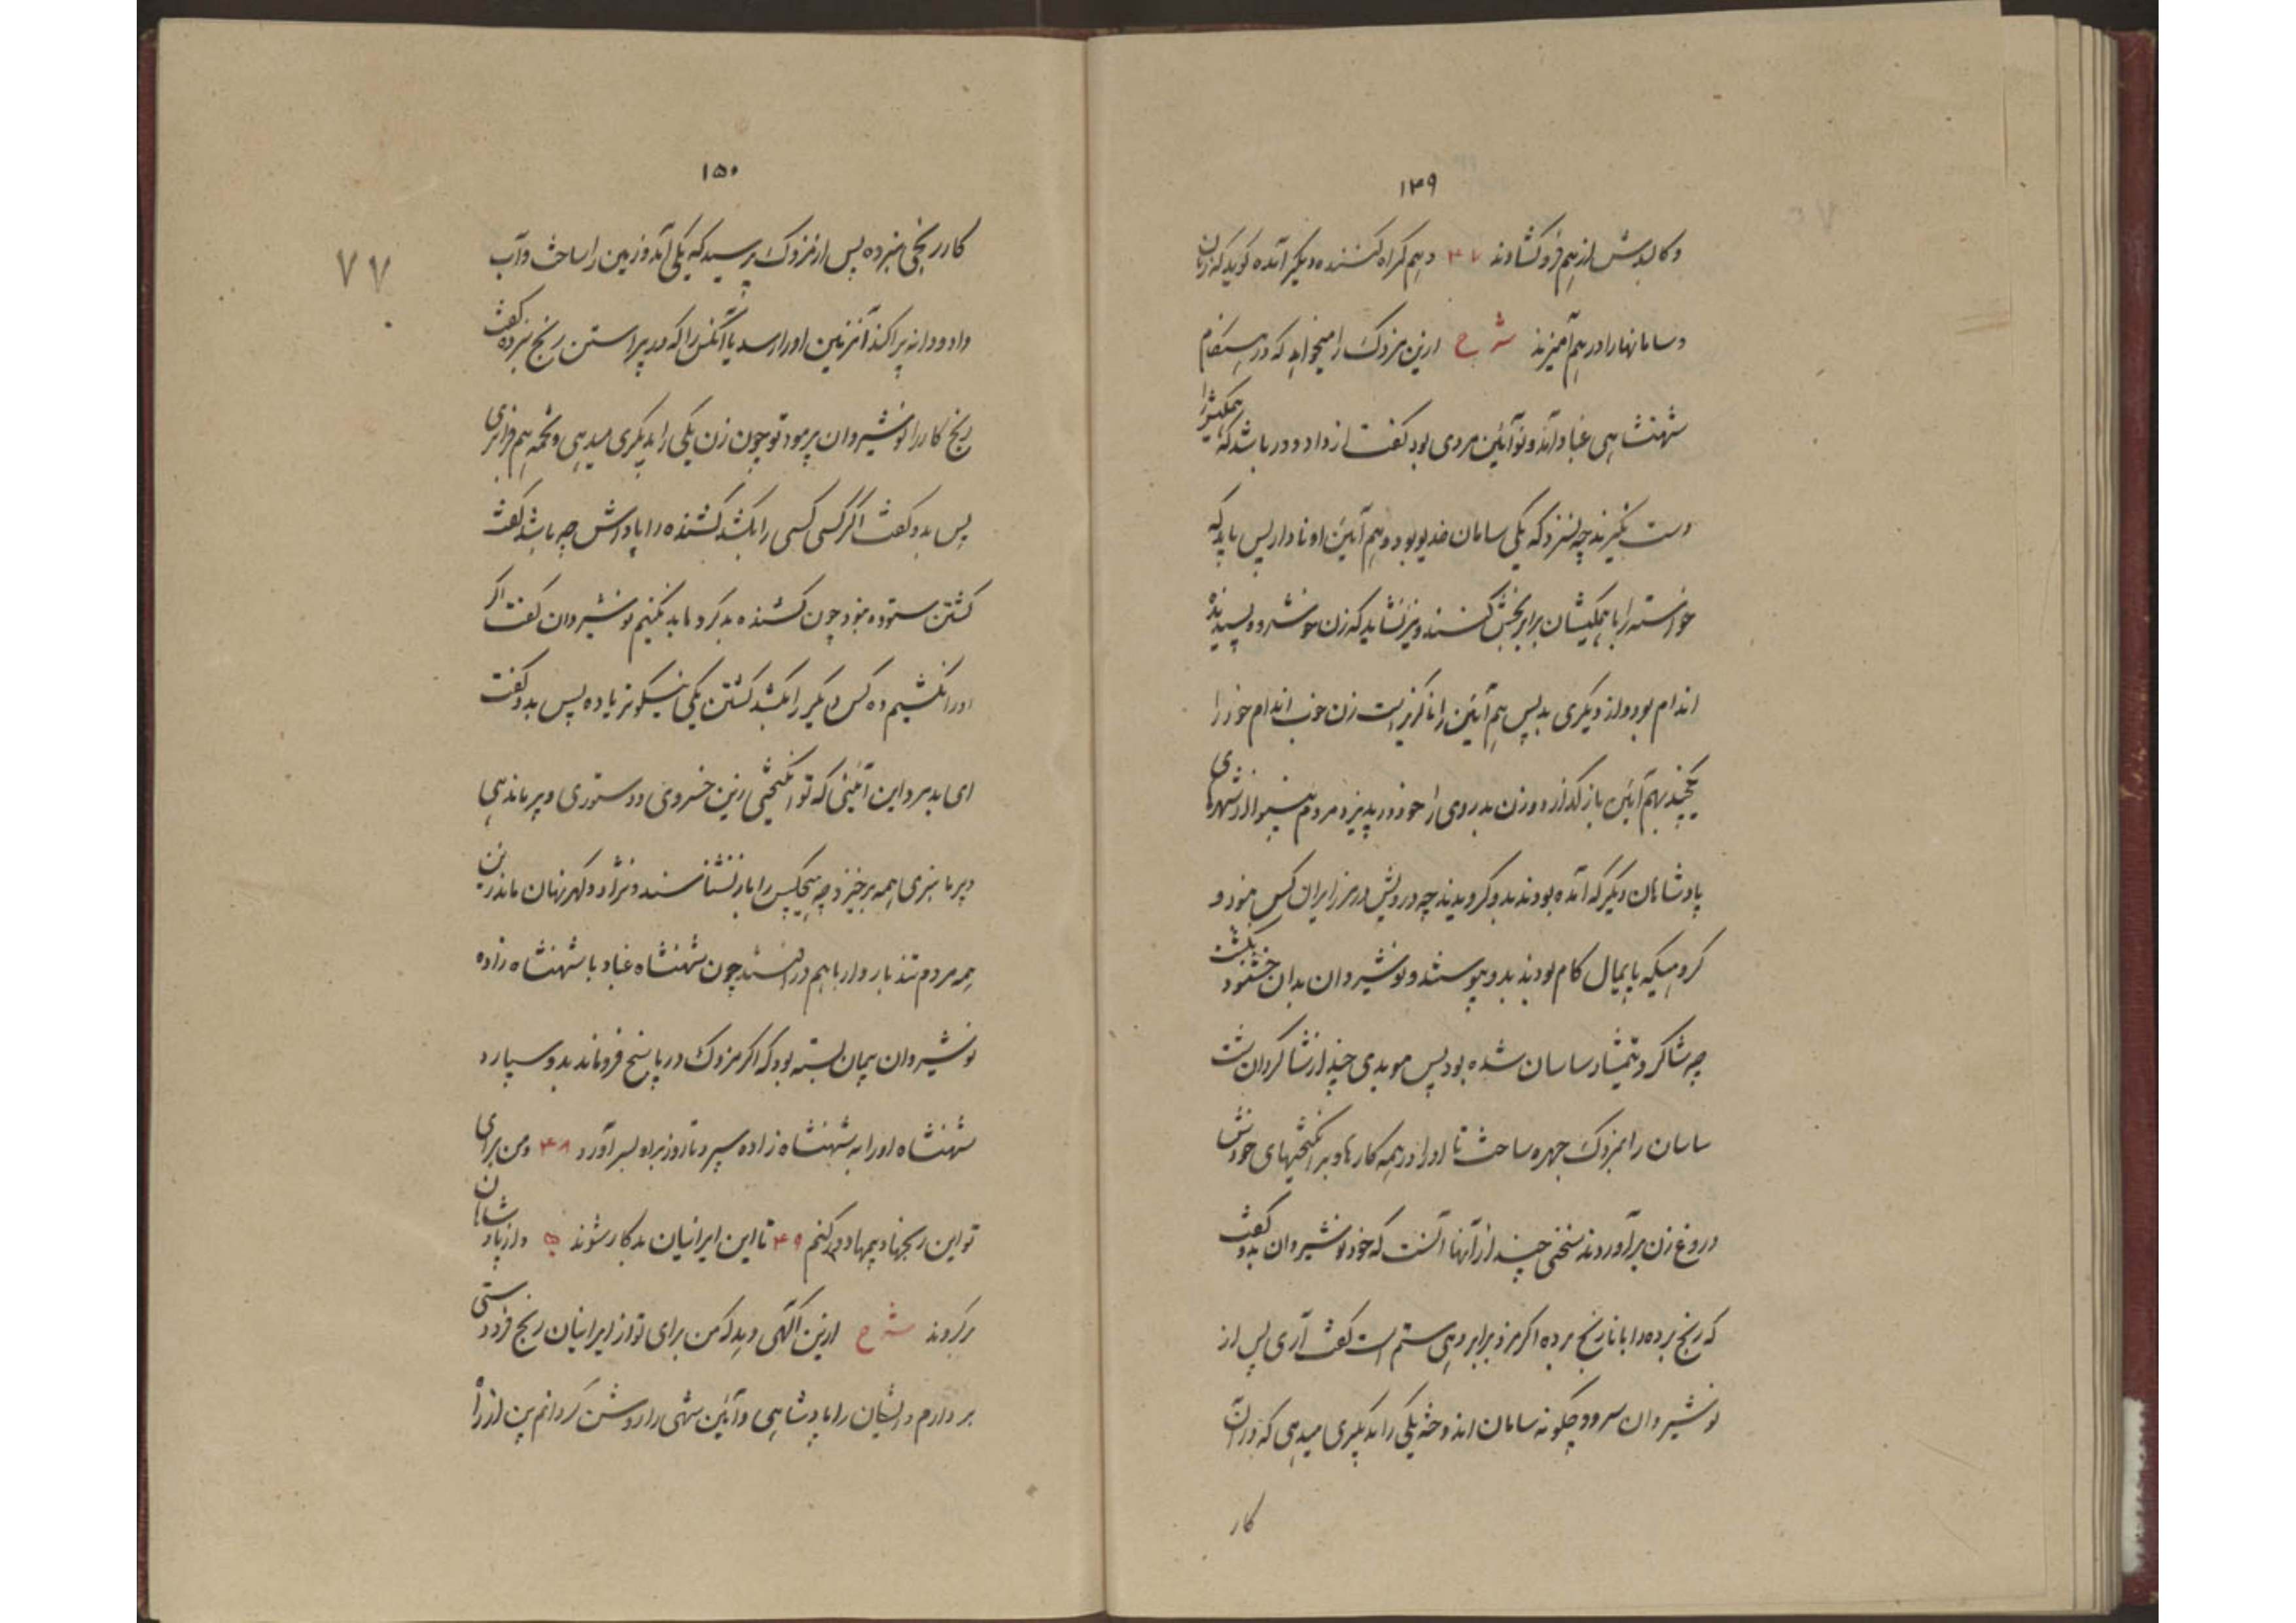 ۱۴۹
و کالبدش از هم فرو کشادند ۴۷ و هم گمراه کننده دیگر آمده گوید که زنان
و سامانها را در هم آمیزند شرح ازین مزدک را میخواهد که در هنگام
شهنشاهی غباد آمد و نوآئین مردی بود گفت از داد دور باشد که همکیش را
دست نگیرند چه نسزد که یکی سامان خدیو بود و هم آئین او نادار پس باید که
خواسته را با همکیشان برابر بخش کنند و نیز نشاید که زن خوشرو و پسندیده
اندام بود و از دیگری بد پس هم آئین را ناگزیر است زن خوب اندام خود را
بهم آئین باز گذارد و زن بد روی را خود در پذیرد مردم بینوا از شهرهای
پادشاهان دیگر که آمده بودند بدو گرویدند چه درویش در مرز ایران کس نبود و
گروهیکه پایمال کام بودند بدو پیوستند و نوشیروان بدان خشنود نگشت
چه شاگرد تیمسار ساسان شده بود پس موبدی چند از شاگردان شت
ساسان را بمزدک چهره ساخت تا او را در همه کارها و بر انگختهای خودش
دروغ زن برآوردند سخنی چند از آنها آنست که خود نوشیروان بدو گفت
که رنج برده را با نا رنج برده اگر مزد برابر دهی ستم است گفت آری پس از
نوشیروان سرود چگونه سامان اندوخته یکی را بدیگری میدهی که در آن
کار
۱۵۰
۷۷
کار رنجی نبرده پس از مزدک پرسید که یکی آمد و زمین را ساخت و آب
داد و دانه پراکند آنزمین او را رسد یا آنکس را که در پیراستن رنج نبرده گفت
رنج کار را نوشیروان پرمود تو چون زن یکی را بدیگری میدهی و تخمه هم
پس بدو گفت اگر کسی کسی را بکشد کشنده را پاداش چه باشد گفت
کشتن ستوده نبود چون کشنده بد کرد ما بد نکنیم نوشیروان گفت اگر
او را نکشیم ده کس دیگر را بکشد کشتن یکی نیکوتر یا ده پس بدو گفت
ای بد مرد این آئینی که تو انگختی زین خسروی و دستوری و پرماندهی
و پرمانبری همه برخیزد چه هیچکس را باز نشناسند و نژاد و گهر نهان ماند زین
همه مردم تندبار وار با هم در افتند چون شهنشاه غباد با شهنشاه زاده
نوشیروان پیمان بسته بود که اگر مزدک در پاسخ فروماند بدو سپارد
شهنشاه او را به شهنشاه زاده سپرد تا روز براو بسر آورد ۴۸ و من برای
تو این رنجها و بیمها دور کنم ۴۹ تا این ایرانیان بدکار شوند ۵۰ و از پادشاهان
برگروند شرح ازین آگهی دهد که من برای تو از ایرانیان رنج فرودستی
بردارم و ایشان را پادشاهی و آئین مهی را روشن گردانم پس از آن